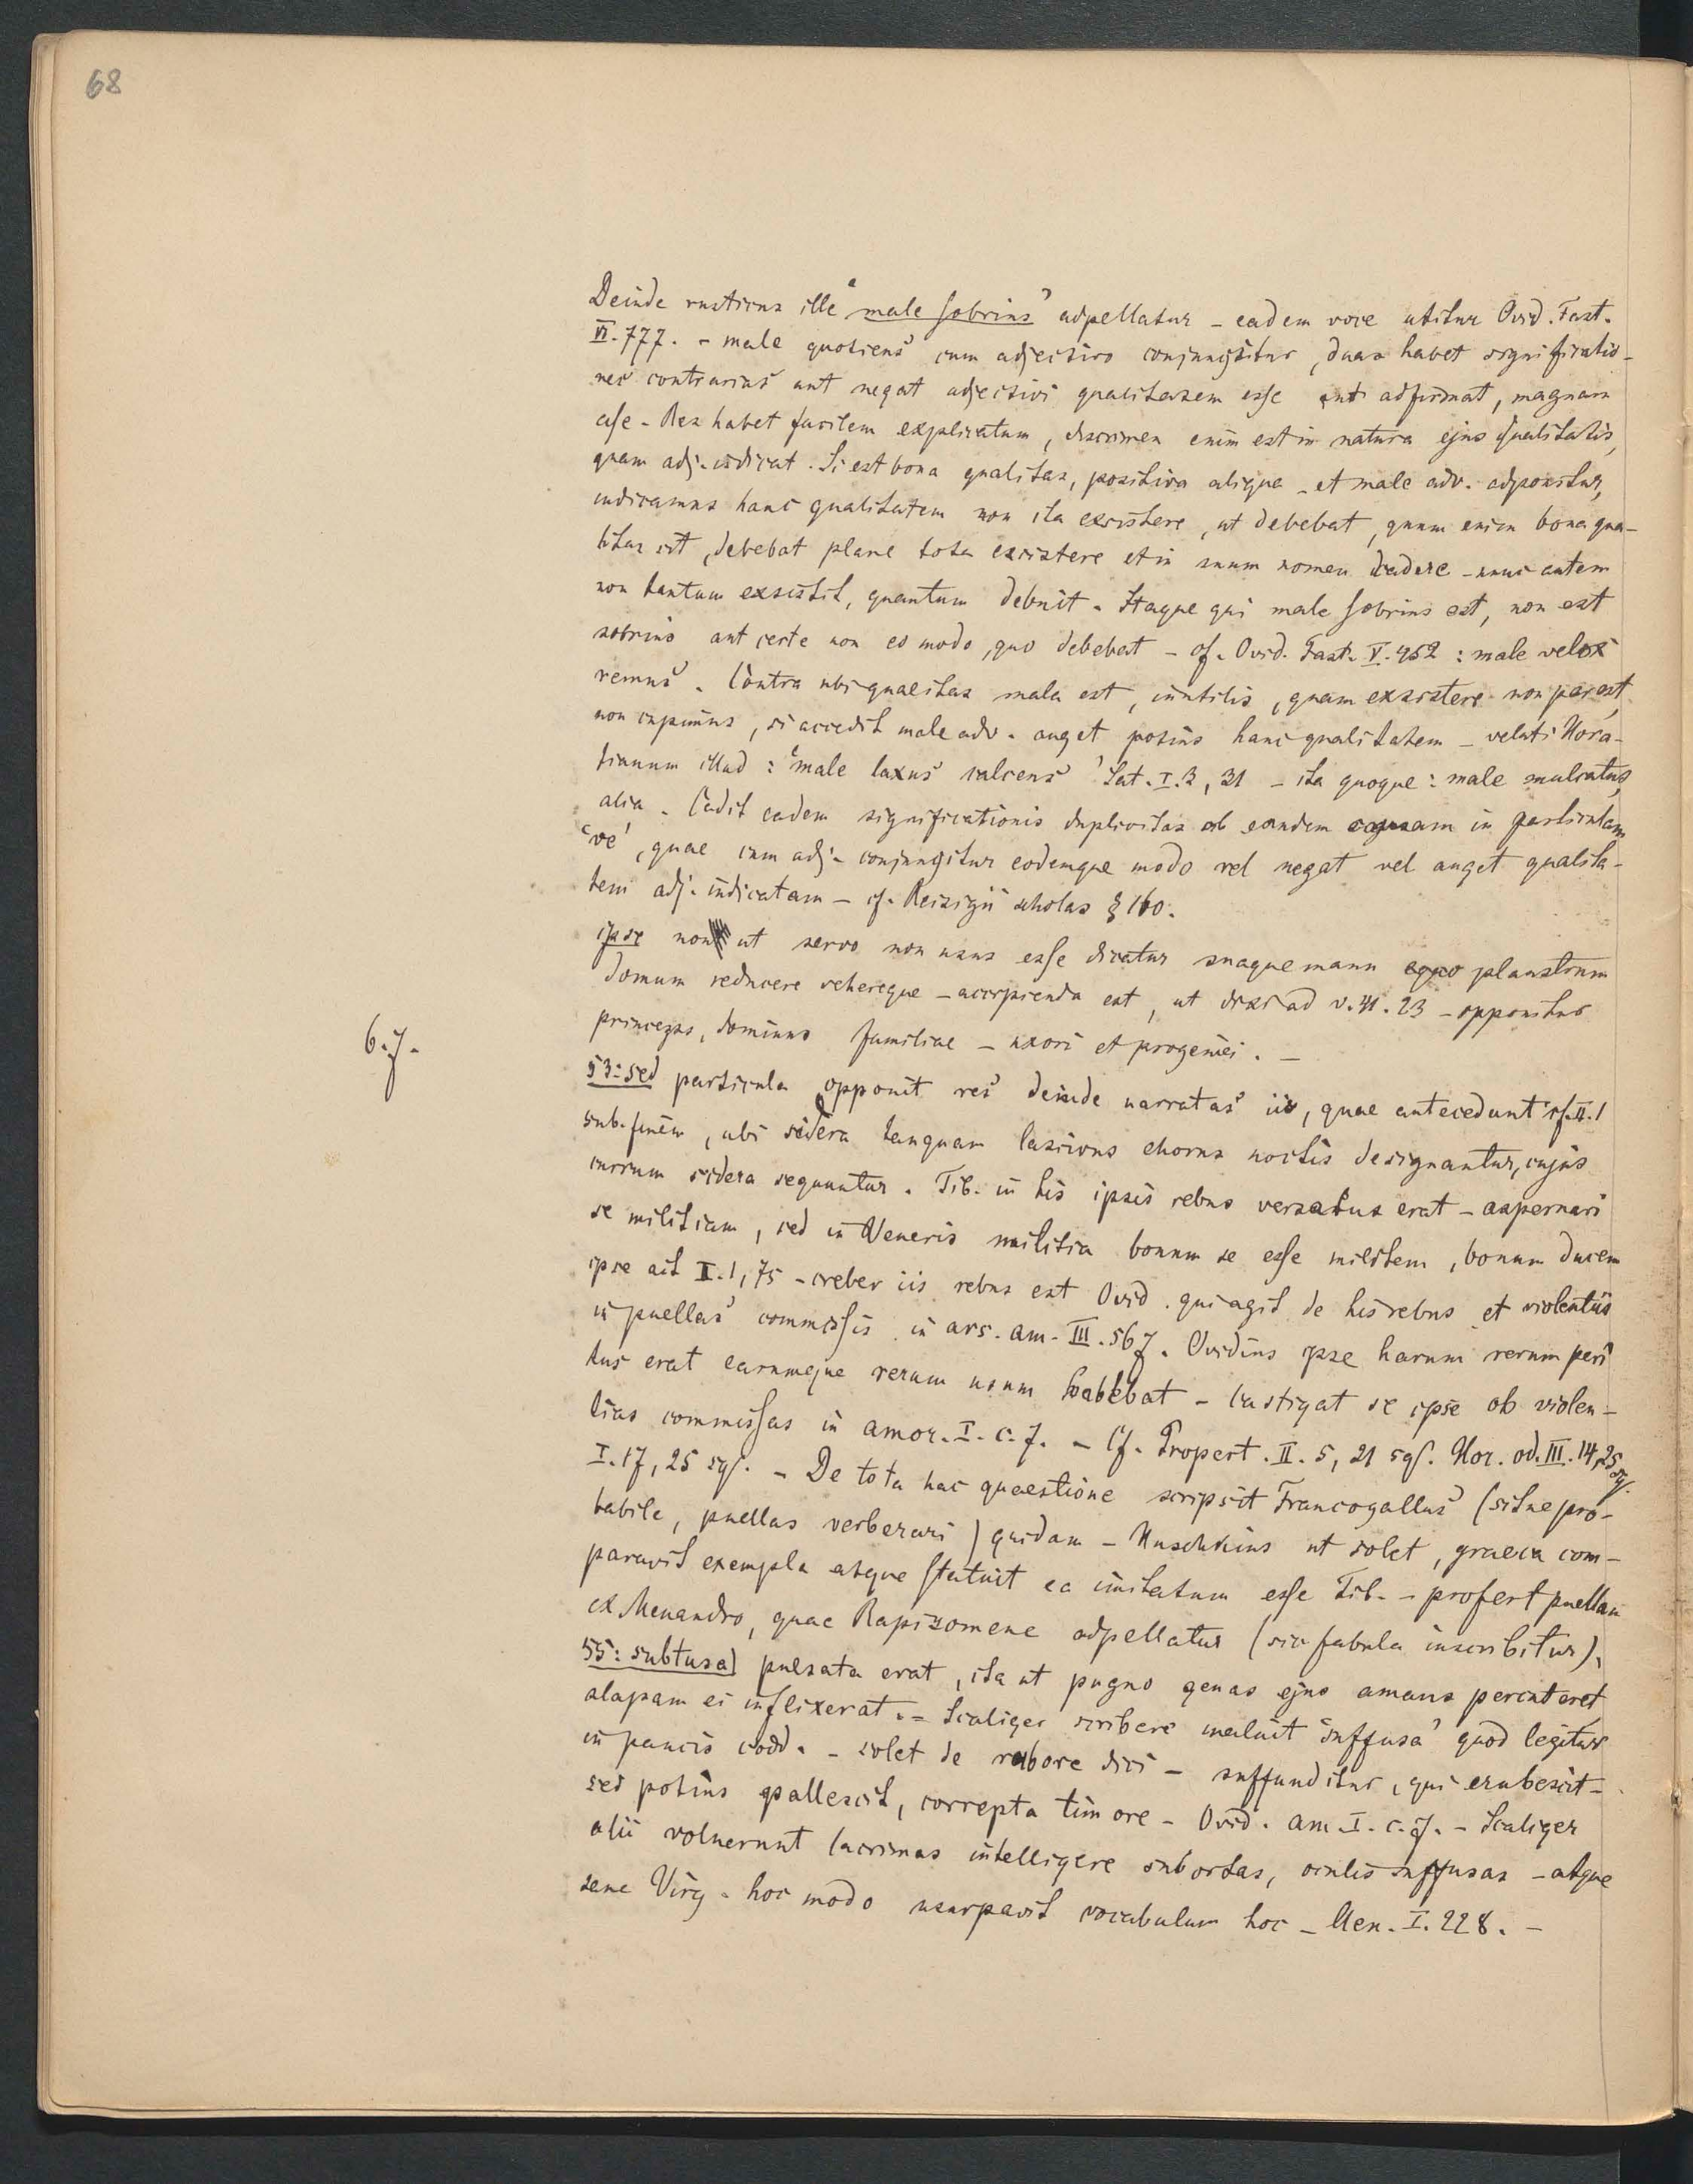 68
Deinde rusticus ille ‘male sobrius’ adpellatur – eadem voce utitur Ovid. Fast.
VI. 777. – male quotiens cum adjectivo conjungitur, duas habet significatio-
nes contrarias aut negat adjectivi qualitatem esse aut adfirmat, magnam
esse – Res habet facilem explicatum, discrimen enim est in natura ejus qualitatis,
quam adj. indicat. Si est bona qualitas, positiva aliqua – et male adv. adponitur,
indicamus hanc qualitatem non ita existere, ut debebat, quum enim bona qua-
litas sit, debebat plane tota existere et in suum nomen cadere – nunc autem
non tantum exsistit, quantum debuit. Itaque qui male sobrius est, non est
sobrius aut certe non eo modo, quo debebat – cf. Ovid. Fast. V. 452 : male velox
remus. Contra ubi qualitas mala est, inutilis, quam exsistere non par est,
non cupimus, si accedit male adv. auget potius hanc qualitatem – veluti Hora-
tianum illud : ‘male laxus calceus’ Sat. I. 3, 31 – ita quoque : male mulcatus,
alia. Cadit eadem significationis duplicitas ob eandem causam in particulam
‘ve’, quae cum adj. conjungitur eodemque modo vel negat vel auget qualita-
tem adj. indicatam – cf. Reisigii scholas § 160.
ipse non ut servo non usus esse dicatur suaque manu plaustrum
domum reducere vehereque – accipienda est, ut dixi ad v. 41. 23 – opponitur
princeps, dominus familiae – uxori et progeniei. –
6.7.
53: sed particula opponit res deinde narratas iis, quae antecedunt cf. II. 1
sub. finem, ubi sidera tanquam lascivus chorus noctis designantur, cujus
currum sidera sequuntur. Tib. in his ipsis rebus versatus erat – aspernari
se militiam, sed in Veneris militia bonum se esse militem, bonum ducem
ipse ait I. 1, 75 – creber iis rebus est Ovid. qui agit de his rebus et violentiis
in puellas commissis in ars. am. III. 567. Ovidius ipse harum rerum peri
tus erat earumque rerum usum habebat – castigat se ipse ob violen-
tias commissas in amor. I. c. 7. – Cf. Propert. II. 5, 21 sqs. Hor. od. III. 14, 25 sq.
I. 17, 25 sqs. – De tota hac quaestione scripsit Francogallus (sitne pro-
babile, puellas verberari) quidam – Huschkius ut solet, graeca com-
paravit exempla atque statuit ea imitatum esse Tib. – profert puellam
ex Menandro, quae Rapizomene adpellatur (sic fabula inscribitur).
55: subtusa] pulsata erat, ita ut pugno genas ejus amans percuteret,
alapam ei inflixerat. – Scaliger scribere maluit ‘suffusa’ quod legitur
in paucis codd. – solet de rubore dici – suffunditur, qui erubescit –
sed potius pallescit, correpta timore – Ovid. am. I. c. 7. – Scaliger
alii voluerunt lacrimas intelligere subortas, oculis suffusas – atque
sane Virg. hoc modo usurpavit vocabulum hoc – Aen. I. 228. –